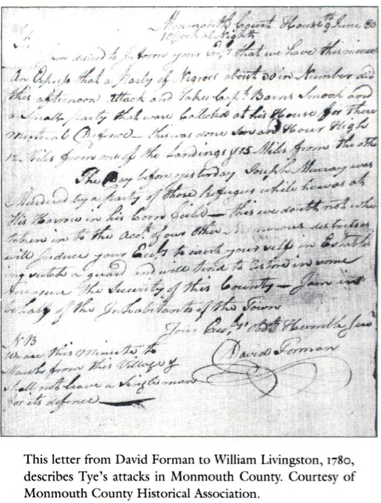 Monmouth Court House 9 June 80
10 oClock at Night
Sir
I am desired to inform your Excy that we have this minute
An Express that a Party of Negros about 30 in Number did
this afternoon attack and take Capt. Barns Smock and
a Small party that ware Collected at his House for there
Mutual Defence This was done Sun an Hour High
12 Mils from one of the Landings & 15 Miles from the other
The Day before yesterday Joseph Murray was
Murdered by a party of those Refugus while he was at
His Harrow in his Corn Field — this we doubt not when
taken in to the Acct of our Other
will Induce your Excly to your self in Establish
ing such a guard as will tend to restore in some
measure the Security of this County — I am in
behalf of the Inhabitants of the Town
Your Excys Obdt Humble Servt
David Forman
NB
We are this Minute to
March from this Village &
Shall not leave a Single man
for its defence
This letter from David Forman to William Livingston, 1780,
describes Tye's attacks in Monmouth County. Courtesy of
Monmouth County Historical Association.